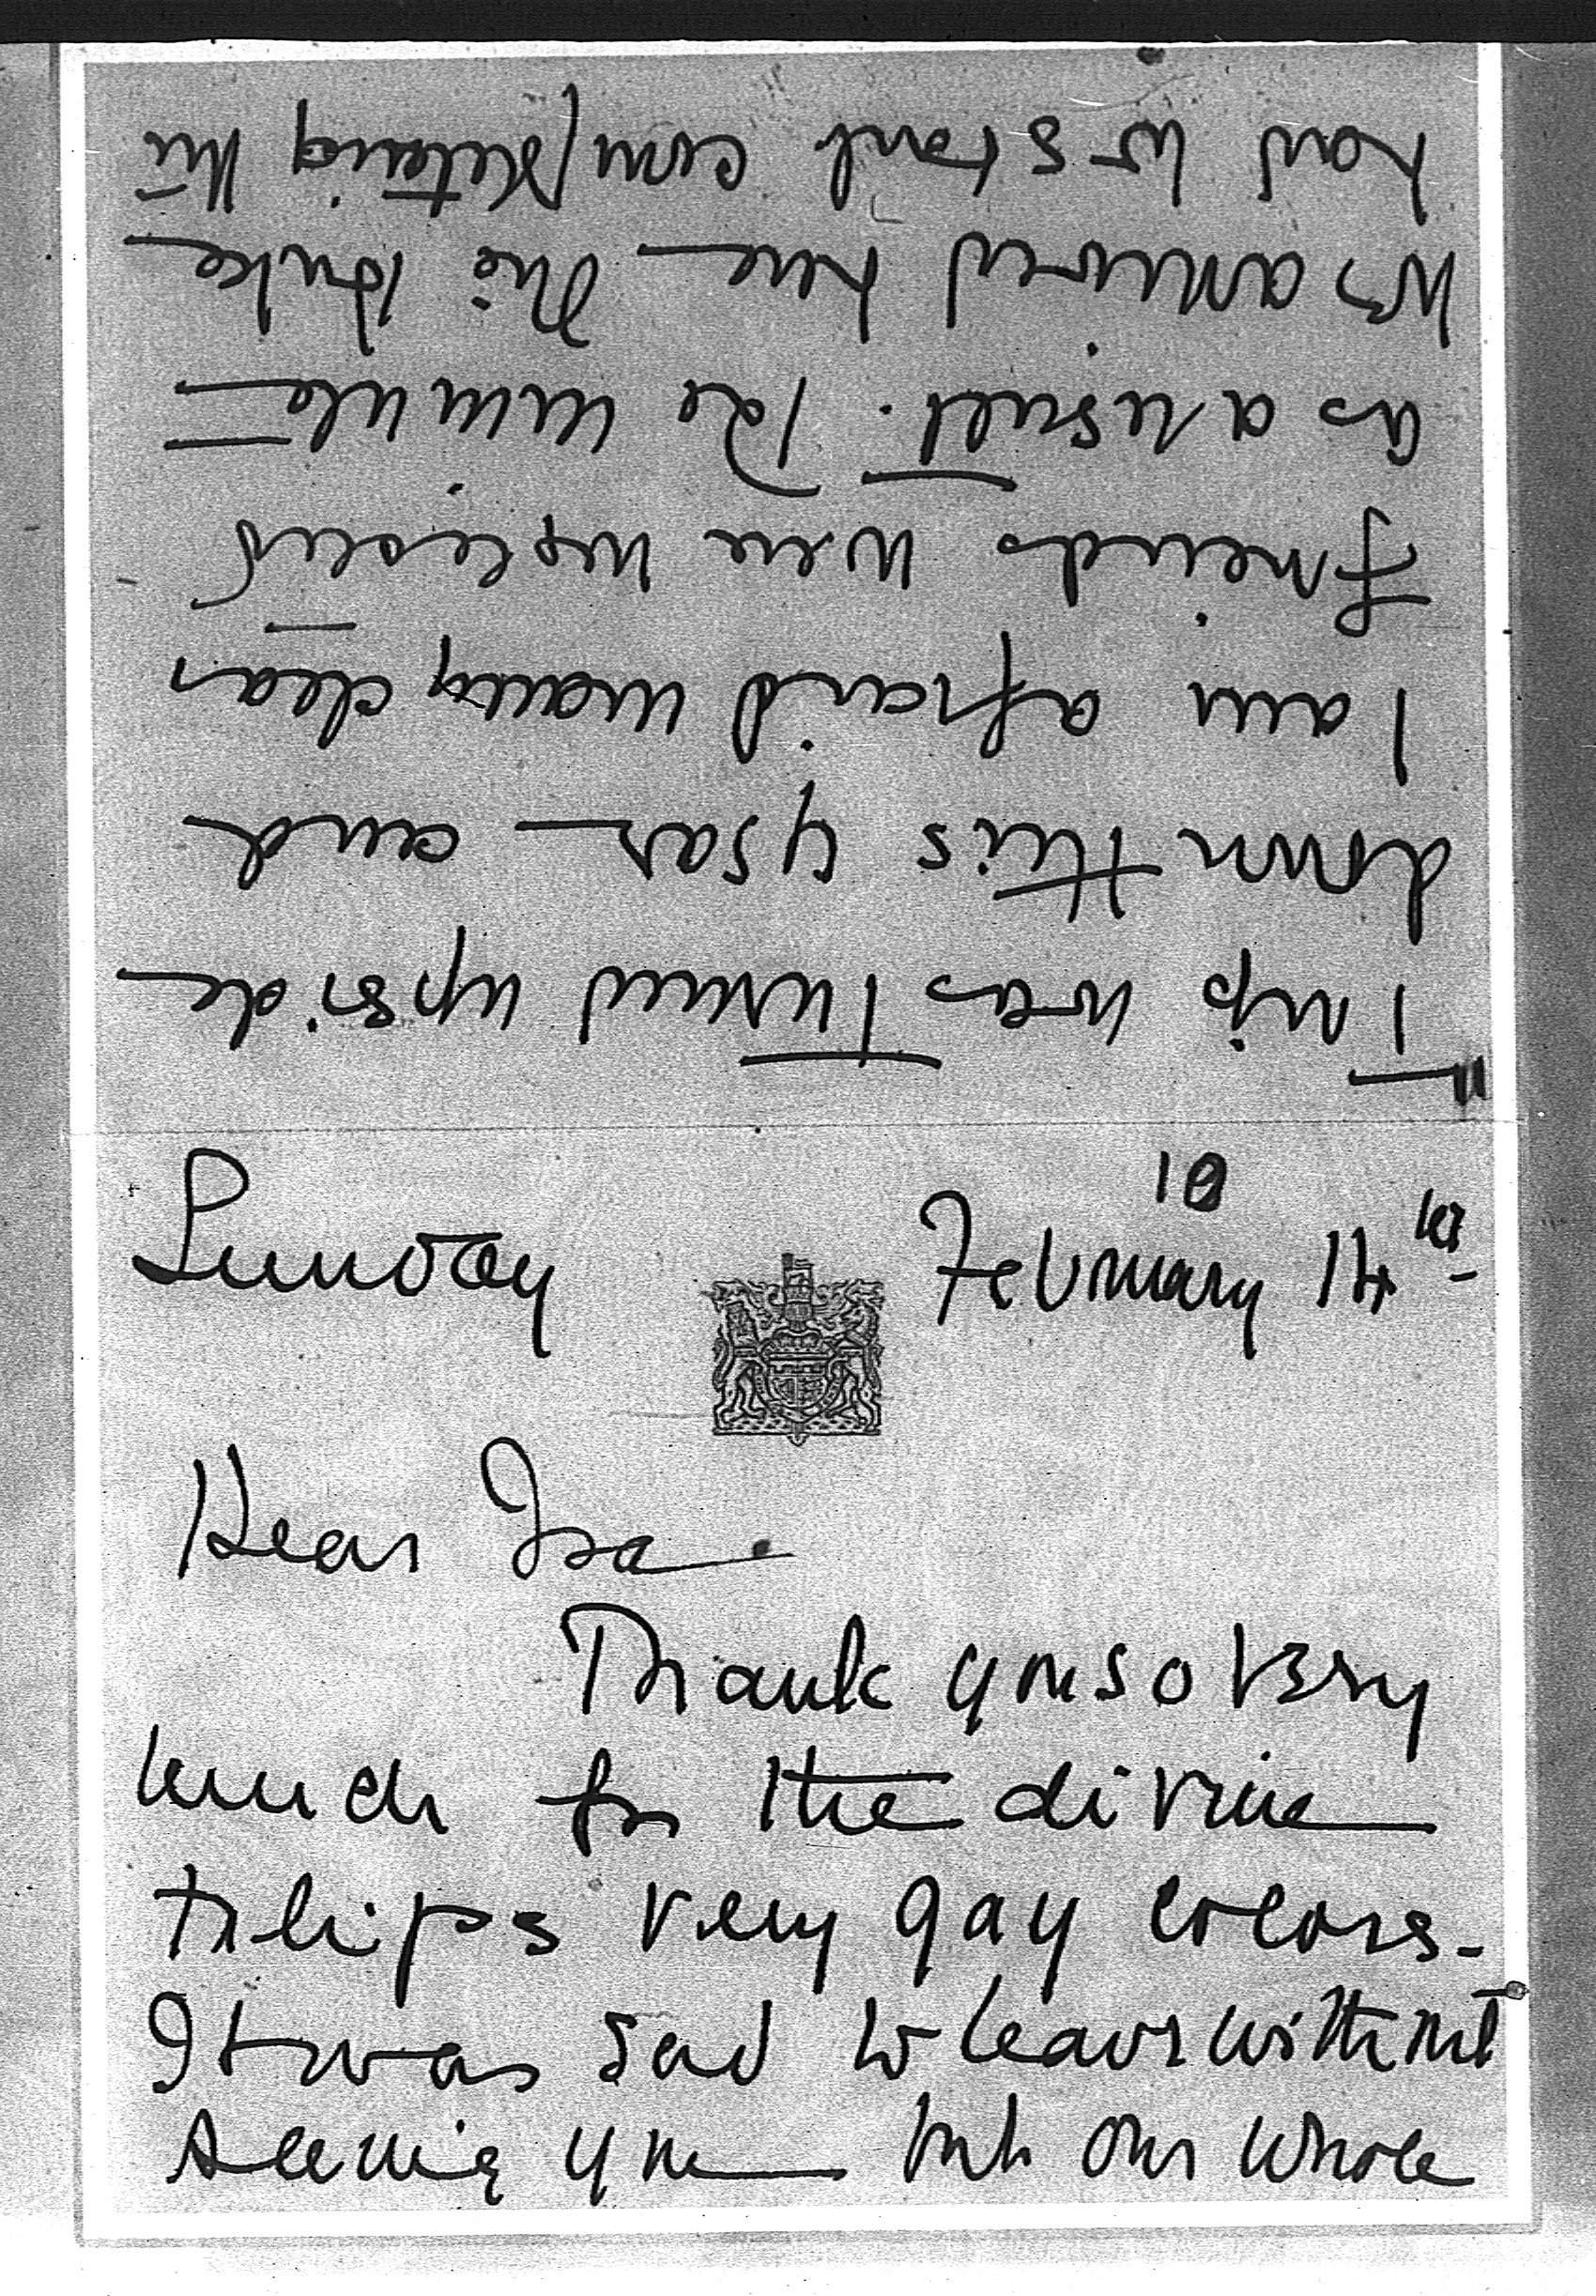 18
Sunday February 14th-
Dear Ira.
Thank you so very
much for the divine
tulips very gay colors-
It was sad to leave without
seeing you — but our whole
Trip was Turned upside
down this year — and
I am afraid many dear
Friends were neglected
as a result. The minute
we arrived here — The Duke
had to start completing the